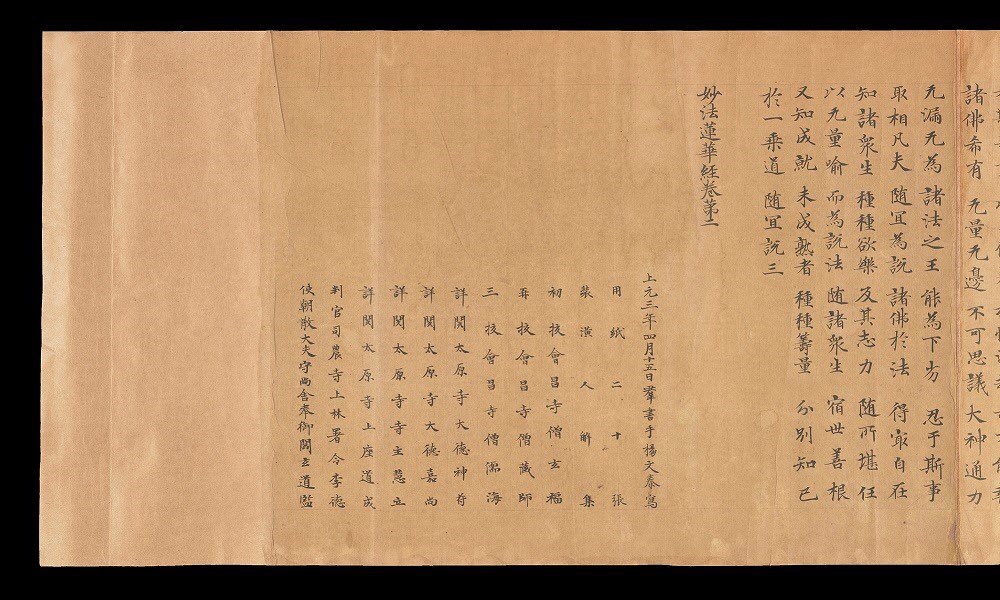 諸佛希有 无量无邊 不可思議 大神通力
无漏无為 諸法之王 能為下劣 忍于斯事
取相凡夫 隨宜為說 諸佛於法 得寂自在
知諸衆生 種種欲樂 及其志力 隨所堪任
以无量喻 而為說法 隨諸衆生 宿世善根
又知成就 未成熟者 種種籌量 分別知已
於一乘道 隨宜說三
妙法蓮華經卷第二
上元三年四月十五日羣書手楊文泰寫
用紙二十張
裝潢人解集
初校會昌寺僧玄福
再校會昌寺僧藏師
三校會昌寺僧儒海
詳閱太原寺大德神符
詳閱太原寺大德嘉尚
詳閱太原寺寺主慧立
詳閱太原寺上座道成
判官司農寺上林署令李德
使朝散大夫守尚舍奉御閻玄道監